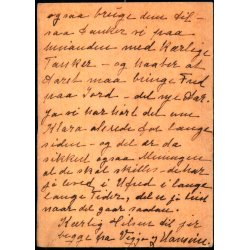 ogsaa bruge dem til -
saa tænker vi paa
hinanden med Kærlige
Tanker - og haaber at
Aaret maa bringe Fred
paa Jord - det nye Aar.
Ja vi har hørt det om
Klara allerede for lange
siden - og det er da
sikkert ogsaa Meningen
at de skal skilles - de har
jo levet i Ufred i lange
lange Tider, det er jo trist
naar det gaar saadan.
Kærlig Hilsen til jer
begge fra Viggo og Hansine.